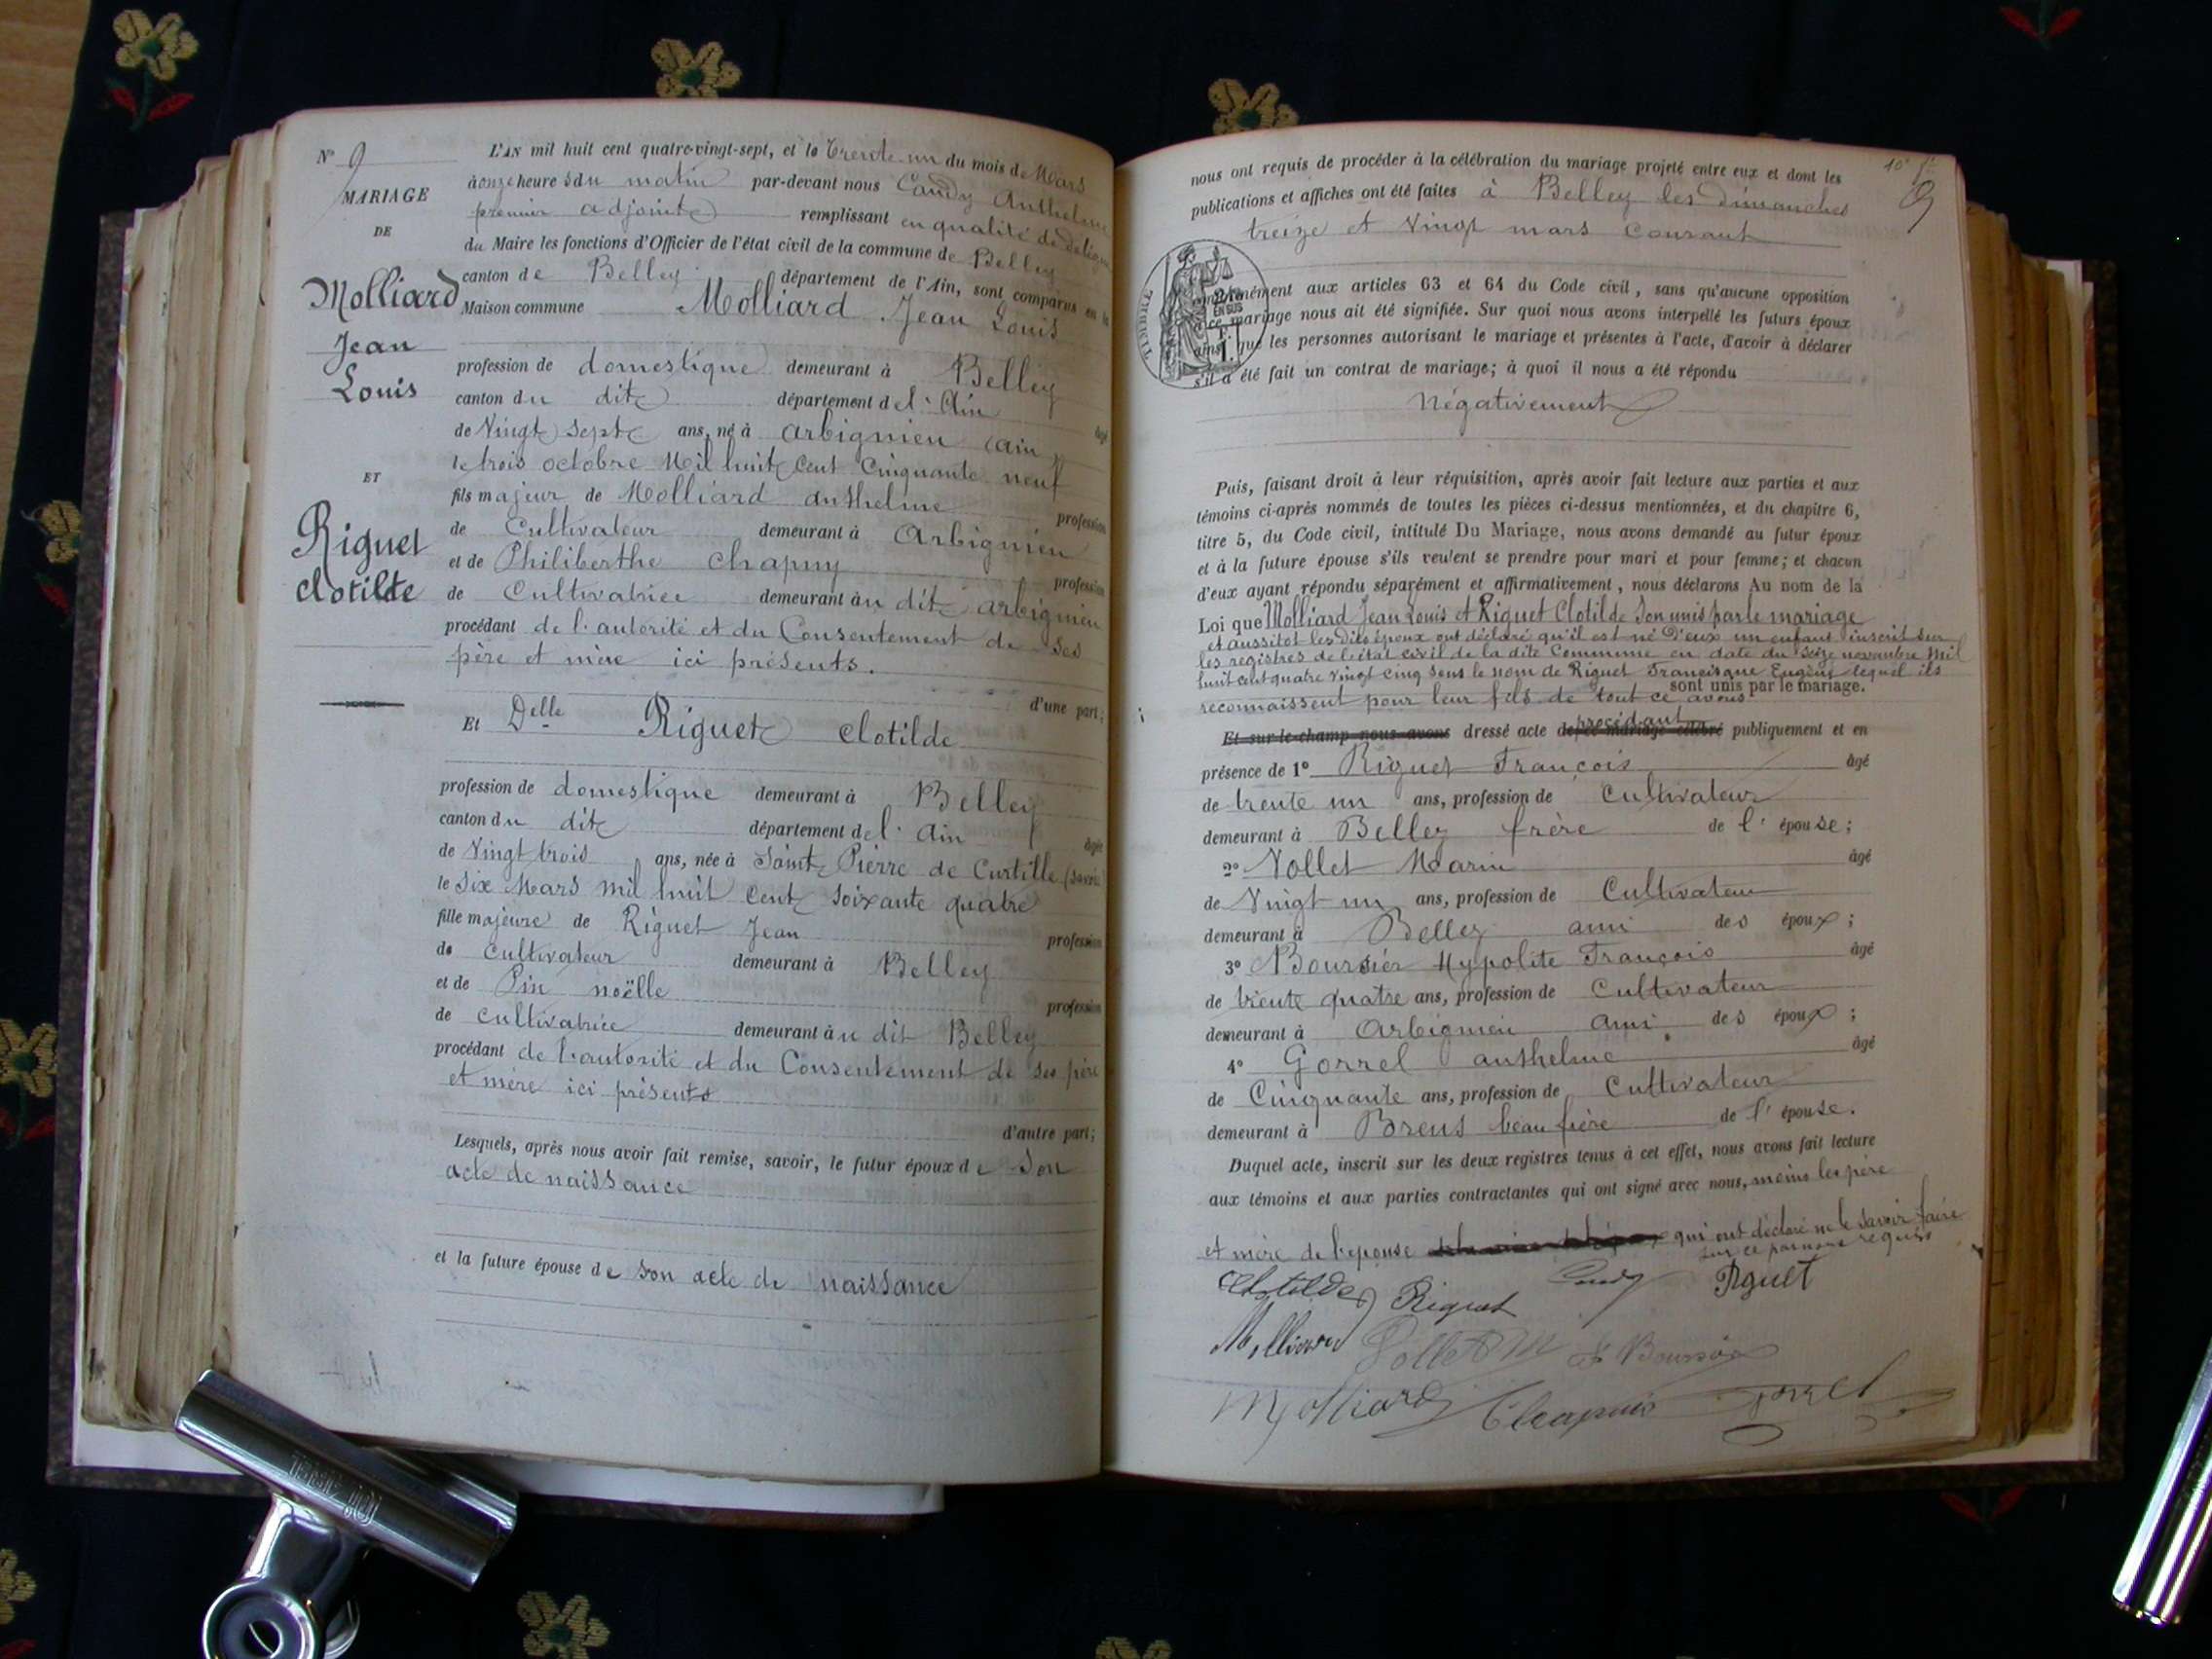 N° 9
MARIAGE
DE
Molliard
Jean
Louis
ET
Riguet
Clotilde
L'AN mil huit cent quatre-vingt-sept, et le trente un du mois de Mars
à onze heures du matin par-devant nous Candy Anthelme
premier adjoint remplissant en qualité de délégué
du Maire les fonctions d'Officier de l'état civil de la commune de Belley
canton de Belley département de l'Ain, sont comparus en la
Maison commune Molliard Jean Louis
profession de domestique demeurant à Belley
canton du dit département de l'Ain âgé
de Vingt Sept ans, né à Arbignieu (Ain)
le trois octobre Mil huit Cent Cinquante neuf
fils majeur de Molliard anthelme profession
de Cultivateur demeurant à Arbignieu
et de Philiberthe Chapuy profession
de Cultivatrice demeurant àu dit arbignieu
procédant de l'autorité et du Consentement de Ses
père et mère ici présents.
d'une part;
Et Delle Riguet Clotilde
profession de domestique demeurant à Belley
canton du dit département de l'Ain âgée
de Vingt trois ans, née à Saint Pierre de Curtille (Savoie
le Six Mars mil huit Cent Soixante quatre
fille majeure de Riguet Jean profession
de Cultivateur demeurant à Belley
et de Pin noëlle profession
de Cultivatrice demeurant àu dit Belley
procédant de l'autorité et du Consentement de ses père
et mère ici présents
d'autre part;
Lesquels, après nous avoir fait remise, savoir, le futur époux de Son
acte de naissance
et la future épouse de Son acte de naissance
10e
9
nous ont requis de procéder à la célébration du mariage projeté entre eux et dont les
publications et affiches ont été faites à Belley les dimanches
treize et Vingt mars Courant
TIMBRE
EN SUS
conformément aux articles 63 et 64 du Code civil, sans qu'aucune opposition
à ce mariage nous ait été signifiée. Sur quoi nous avons interpellé les futurs époux
ainsi que les personnes autorisant le mariage et présentes à l'acte, d'avoir à déclarer
s'il a été fait un contrat de mariage; à quoi il nous a été répondu
Négativement
Puis, faisant droit à leur réquisition, après avoir fait lecture aux parties et aux
témoins ci-après nommés de toutes les pièces ci-dessus mentionnées, et du chapitre 6,
titre 5, du Code civil, intitulé Du Mariage, nous avons demandé au futur époux
et à la future épouse s'ils veulent se prendre pour mari et pour femme; et chacun
d'eux ayant répondu séparément et affirmativement, nous déclarons Au nom de la
Loi que Molliard Jean Louis et Riguet Clotilde Son unis par le mariage
et aussitot les dits époux ont déclaré qu'il est né D'eux un enfant inscrit sur
les registres de l'état civil de la dite Commune en date du Seize novembre Mil
huit cent quatre vingt cinq sous le nom de Riguet Francisque Eugène lequel ils
sont unis par le mariage.
reconnaissent pour leur fils de tout ce avons
précédant
Et sur-le-champ nous avons dressé acte de ce mariage célébré publiquement et en
présence de 1° Riguet François âgé
de trente un ans, profession de Cultivateur
demeurant à Belley frère de l'épouse;
2° Vollet Marin âgé
de Vingt un ans, profession de Cultivateur
demeurant à Belley ami des époux;
3° Boursier Hypolite François âgé
de trente quatre ans, profession de Cultivateur
demeurant à Arbignieu ami des époux;
4° Gorrel anthelme âgé
de Cinquante ans, profession de Cultivateur
demeurant à Brens beau frère de l'épouse.
Duquel acte, inscrit sur les deux registres tenus à cet effet, nous avons fait lecture
aux témoins et aux parties contractantes qui ont signé avec nous, moins les père
et mère de l'épouse qui ont déclaré ne le savoir faire
sur ce par nous requis
Clotilde Riguet Candy Riguet
Molliard Vollet M F Boursier
Molliard Chapuis Gorrel